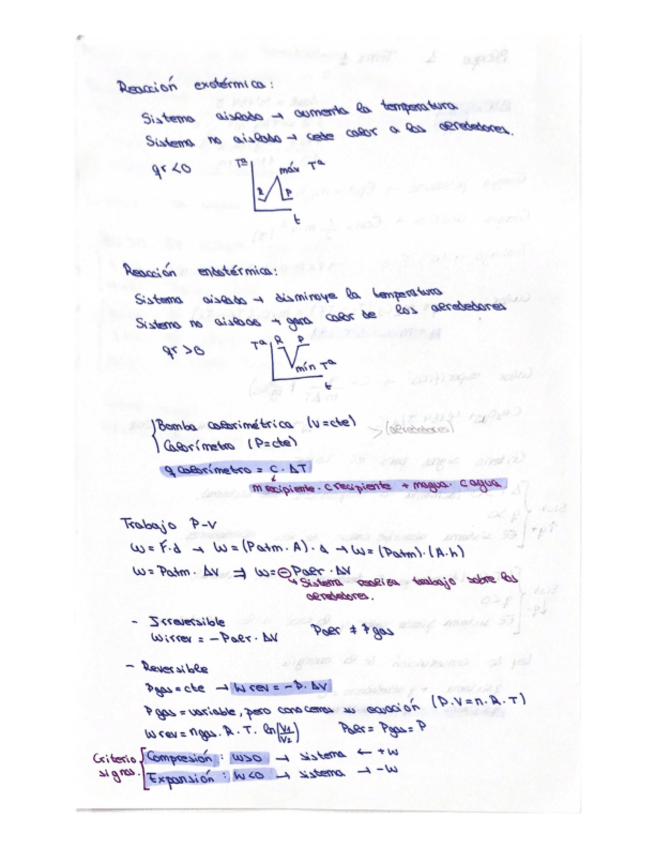 Reacción exotérmica:
Sistema aislado → aumenta la temperatura
Sistema no aislado → cede calor a los alrededores.
qr<0
Tª
máx Tª
R
P
t
Reacción endotérmica:
Sistema aislado → disminuye la temperatura
Sistema no aislado → gana calor de los alrededores
qr>0
Tª
R
P
mín Tª
t
Bomba calorimétrica (V=cte)
(alrededores)
Calorímetro (P=cte)
q calorímetro = C·ΔT
m recipiente · c recipiente + magua · c agua
Trabajo P-V
W=F·d → W=(Patm·A)·d → W=(Patm)·(A·h)
W=Patm·ΔV ⇒ W=-Paer·ΔV
Sistema realiza trabajo sobre los
alrededores.
- Irreversible
Wirrev=-Paer·ΔV Paer ≠ Pgas
- Reversible
Pgas=cte → W rev=-P·ΔV
P gas=variable, pero conocemos su ecuación (P.V=n.R.T)
W rev=ngas.R.T. ln(V1/V2) Paer=Pgas=P
Criterio
signos.
Compresión: W>0 → sistema ← +W
Expansión: W<0 → sistema → -W